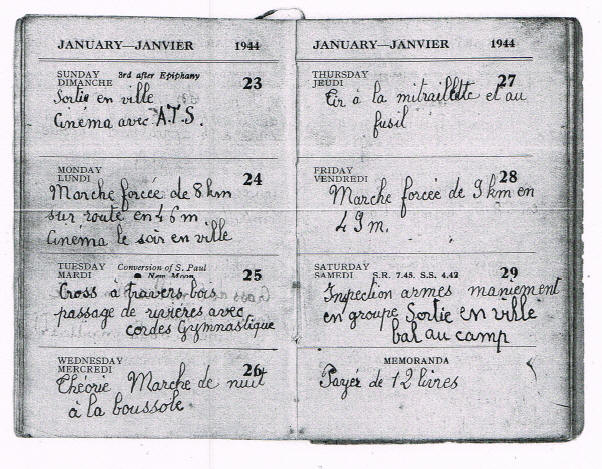 JANUARY—JANVIER 1944
SUNDAY 3rd after Epiphany 23
DIMANCHE
Sortie en ville
Cinéma avec A.T.S.
MONDAY 24
LUNDI
Marche forcée de 8 km
sur route en 46 m
Cinéma le soir en ville
TUESDAY Conversion of S. Paul 25
MARDI ● New Moon
Cross à travers bois
passage de rivières avec
cordes Gymnastique
WEDNESDAY 26
MERCREDI
Théorie Marche de nuit
à la boussole
JANUARY—JANVIER 1944
THURSDAY 27
JEUDI
Tir à la mitraillette et au
fusil
FRIDAY 28
VENDREDI
Marche forcée de 9 km en
49 m.
SATURDAY 29
SAMEDI S.R. 7.45, S.S. 4.42
Inspection armes maniement
en groupe Sortie en ville
bal au camp
MEMORANDA
Payer de 12 livres